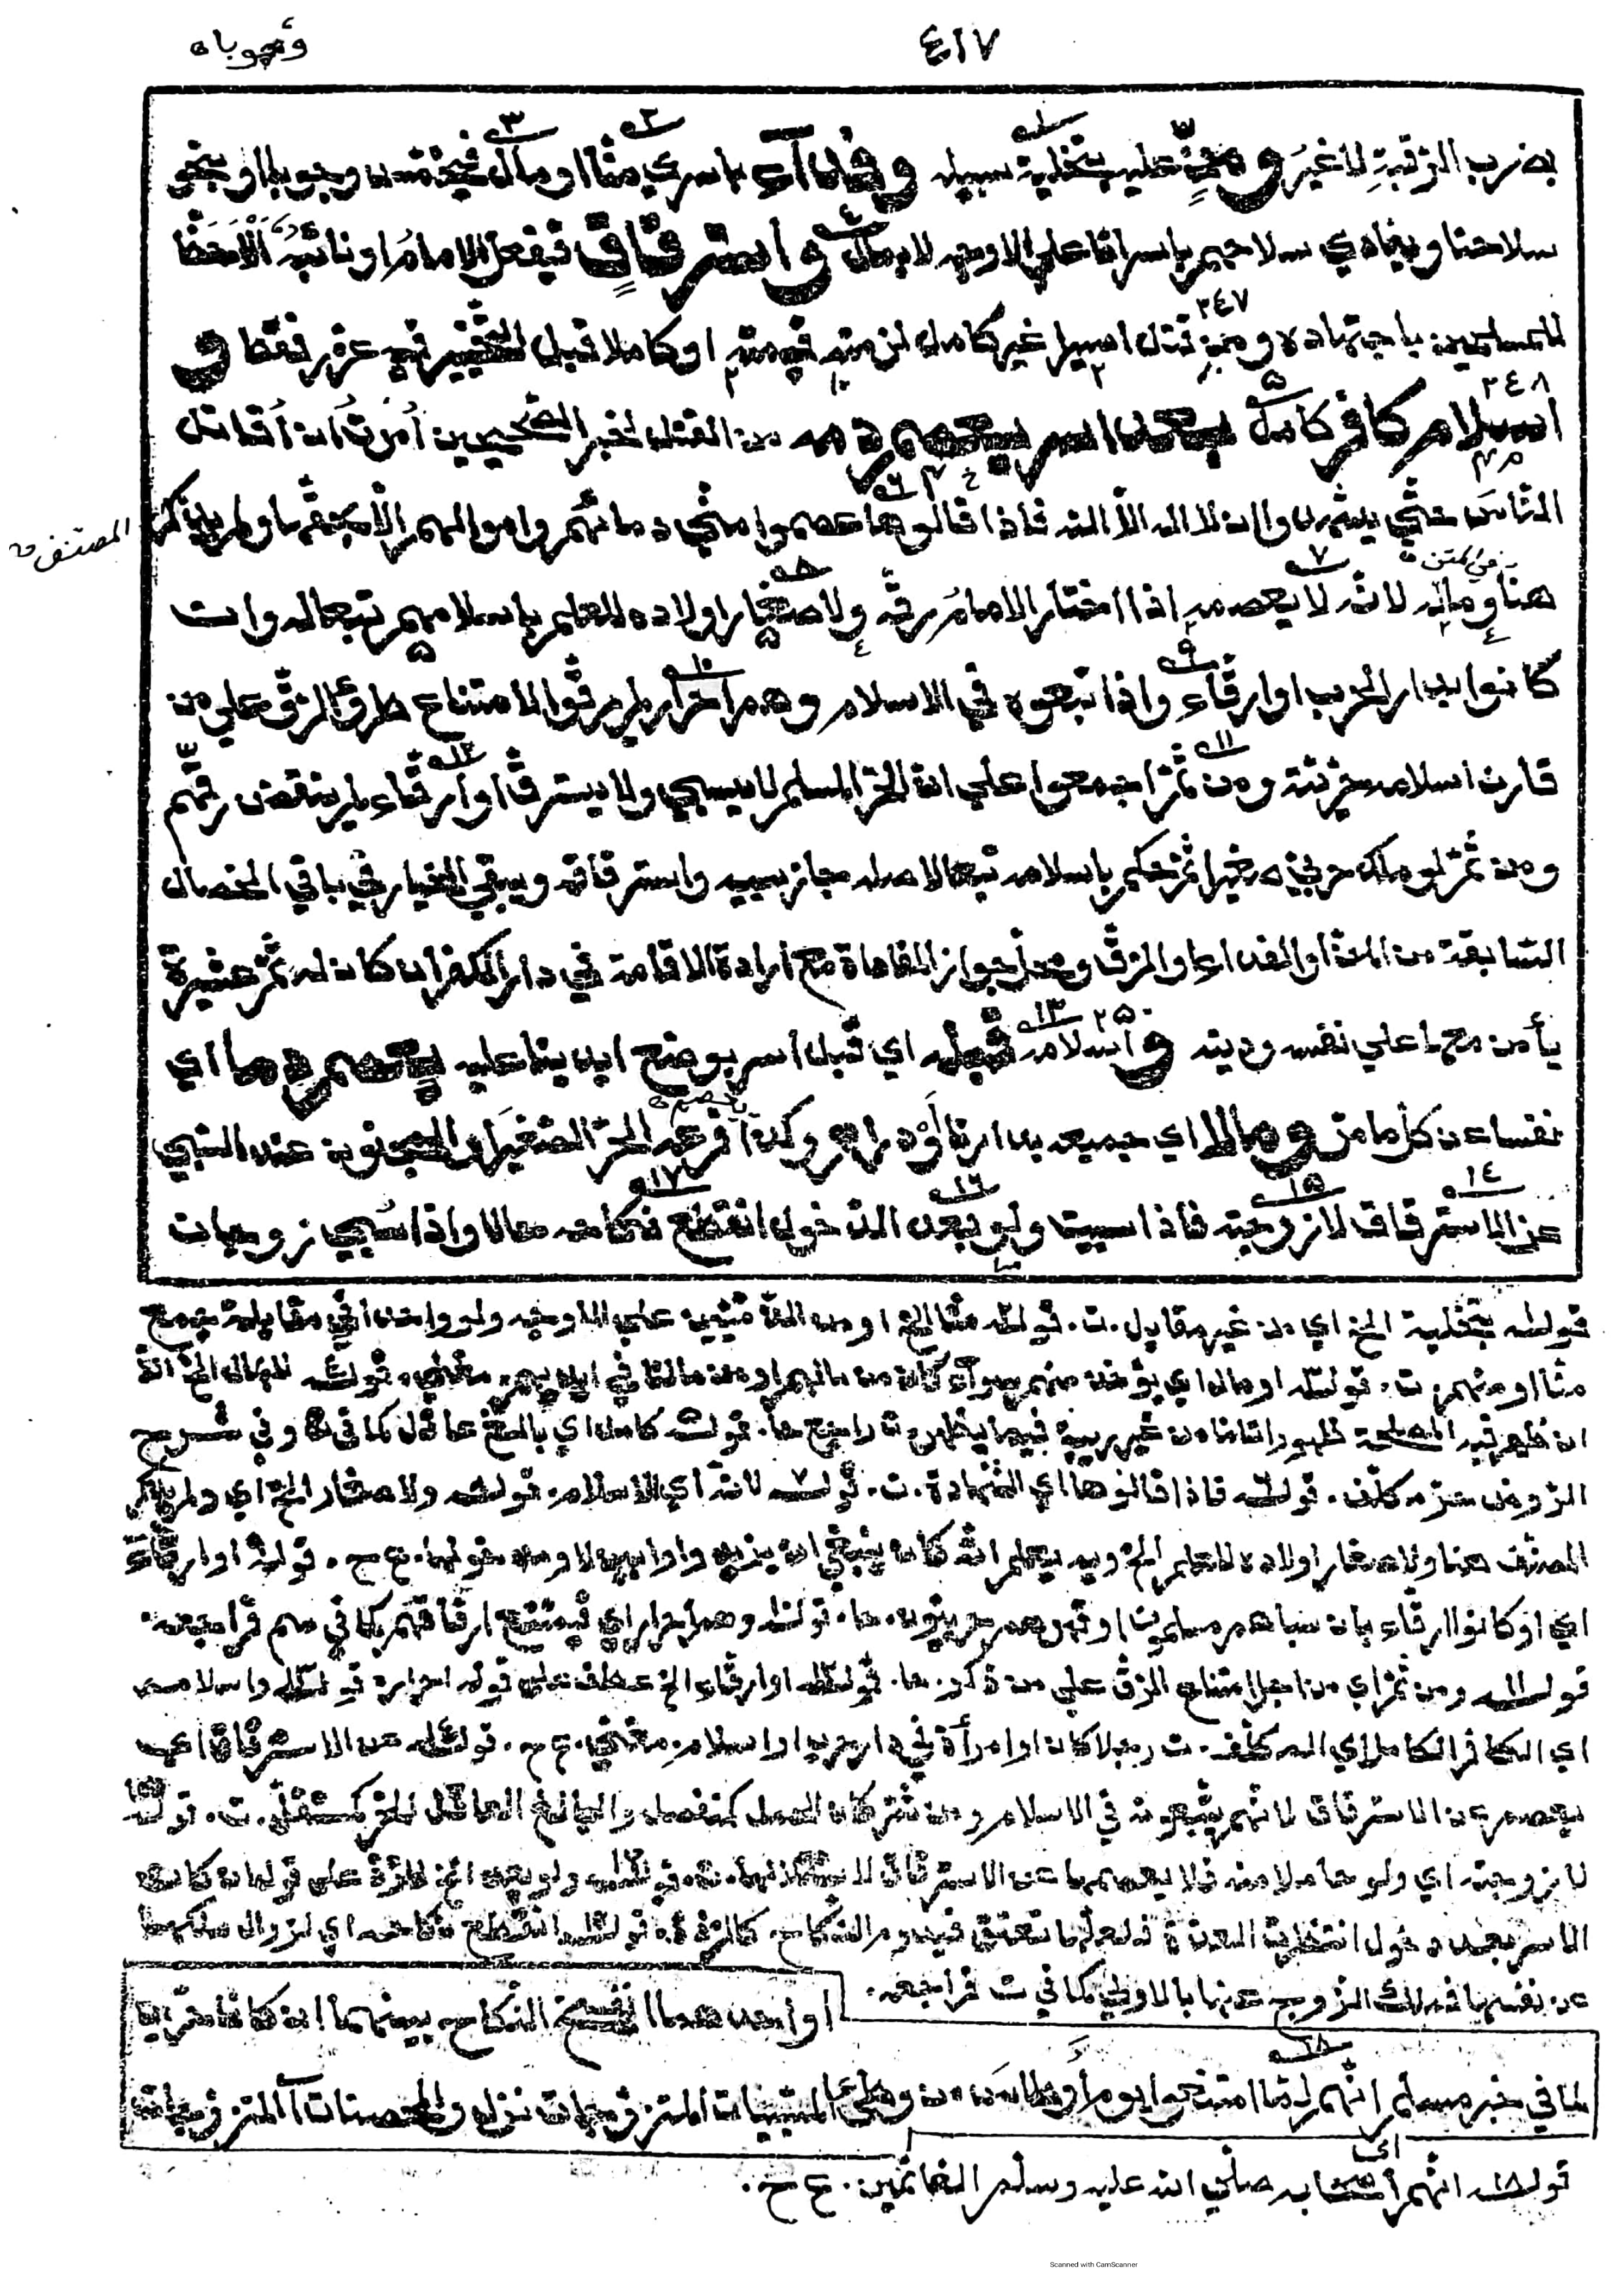 ٤١٧
وجوبا
بضرب الرقبة لا غير ومنّ عليه بتخلية سبيله وفداء بأسرى منا او مال فيخمس وجوبا او بنحو
سلاحنا ويفادي سلاحهم بأسرانا على الاوجه لا بمال واسترقاق فيفعل الامام او نائبه الاحظ
للمسلمين باجتهاده ومن قتل اسيرا غير كامل لزمته قيمته او كاملا قبل التخيير فيه عزر فقط و
٢٤٧
٢٤٨
اسلام كافر كامل بعد اسر يعصم دمه من القتل لخبر الصحيحين أمرت أن أقاتل
الناس حتى يشهدوا ان لا اله الا الله فاذا قالوها عصموا مني دماءهم واموالهم الا بحقها ولم يذكر
المصنف
هنا وماله لانه لا يعصمه اذا اختار الامام رقه ولا صغار اولاده للعلم باسلامهم تبعا له وان
كانوا بدار الحرب او ارقاء واذا تبعوه في الاسلام وهم احرار لم يرقوا لامتناع طرو الرق على من
قارن اسلامه حريته ومن ثم اجمعوا على ان الحر المسلم لا يسبى ولا يسترق او ارقاء لم ينقض رقهم
ومن ثم لو ملك حربي صغيرا ثم حكم باسلامه تبعا لاصله جاز سبيه واسترقاقه ويبقى الخيار في باقي الخصال
السابقة من المن او الفداء او الرق ومحل جواز المفاداة مع ارادة الاقامة في دار الكفر ان كان له ثم عشيرة
٢٥٠
يأمن معها على نفسه ودينه واسلامه قبله اي قبل اسر بوضع ايدينا عليه يعصم دما اي
نفسا عن كل ما مر ومالا اي جميعه بدارنا أو دارهم وكذا فرعه الحر الصغير والمجنون عند السبي
عن الاسترقاق لا زوجته فاذا سبيت ولو بعد الدخول انقطع نكاحه حالا واذا سبي زوجان
قوله بتخلية الخ اي من غير مقابل. ت. قوله منا الخ او من الذميين على الاوجه ولو واحدا في مقابلة جمع
منا او منهم. ت. قوله او مال اي يؤخذ منهم سواء كان من مالهم او من مالنا في ايديهم. مغني. قوله لا بمال الخ الا
ان ظهرت فيه المصلحة ظهورا تاما من غير ريبة فيما يظهر. ت راجع ها. قوله كامل اي بالغ عاقل كما في وفي شرح
الروض حر مكلف. قوله فاذا قالوها اي الشهادة. ت. قوله لانه اي الاسلام. قوله ولا صغار الخ اي ولم يذكر
المصنف هنا ولا صغار اولاده للعلم الخ وبه يعلم انه كان ينبغي ان يزيد واوا قبل لا ومن نحوها. ع ح. قوله او ارقاء
اي او كانوا ارقاء بان سباهم مسلمون او قهرهم حربيون. ها. قوله وهم احرار اي فيمتنع ارقاقهم كما في سم فراجعه.
قوله ومن ثم اي من اجل امتناع الرق على من ذكر. ها. قوله او ارقاء الخ عطف على قوله احرار. قوله واسلامه
اي الكافر الكامل اي المكلف. ت رجلا كان او امرأة في دار حرب او اسلام. مغني. ع ح. قوله عن الاسترقاق اي
يعصم عن الاسترقاق لانهم يتبعونه في الاسلام ومن ثم كان الحمل كمنفصل والبالغ العاقل الحر كمستقل. ت. قوله
لا زوجته اي ولو حاملا منه فلا يعصمها عن الاسترقاق لاستقلالها. ت. قوله ولو بعد الخ نعم ان كان
الاسر بعد دخول انتظرت العدة فلعلها تعتق فيدوم النكاح كالردة. قوله انقطع نكاحه اي لزوال ملكها
عن نفسها فملك الزوج عنها بالاولى كما في ت فراجعه.
او احدهما انفسخ النكاح بينهما ان كانا حرين
لما في خبر مسلم انهم لما امتنعوا يوم أوطاس من وطئ المسبيات المتزوجات نزل والمحصنات اي المتزوجات
قوله انهم اي اصحابه صلى الله عليه وسلم الغانمين. ع ح.
Scanned with CamScanner